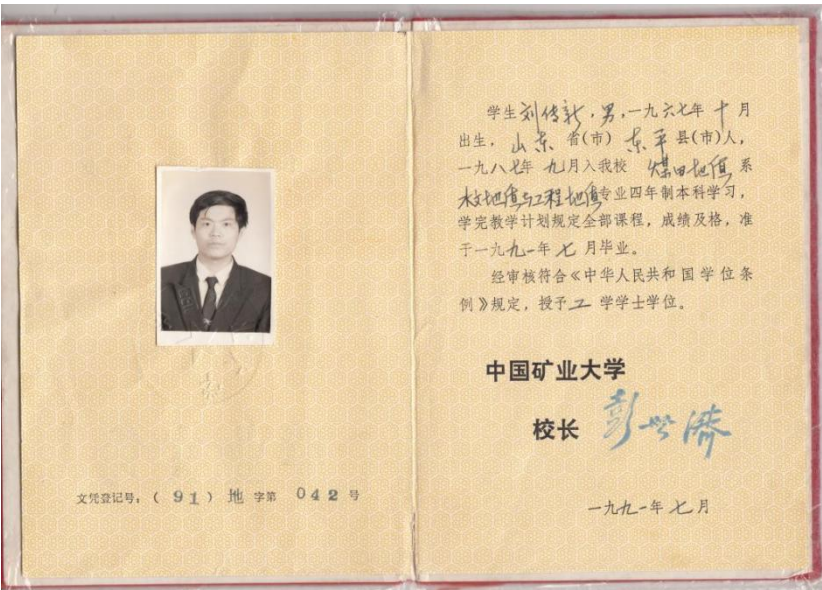 文凭登记号：（91）地 字第 042 号
学生刘传新，男，一九六七年十月
出生，山东省(市)东平县(市)人，
一九八七年九月入我校 煤田地质 系
水文地质与工程地质专业四年制本科学习，
学完教学计划规定全部课程，成绩及格，准
于一九九一年七月毕业。
经审核符合《中华人民共和国学位条
例》规定，授予工学学士学位。
中国矿业大学
校长 彭世济
一九九一年七月